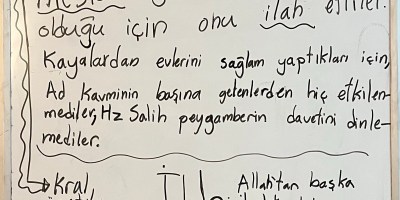 olduğu için onu ilah
Kayalardan evlerini sağlam yaptıkları için,
Ad Kavminin başına gelenlerden hiç etkilen-
mediler, Hz Salih peygamberin davetini dinle-
mediler.
Kral,
Allah'tan başka